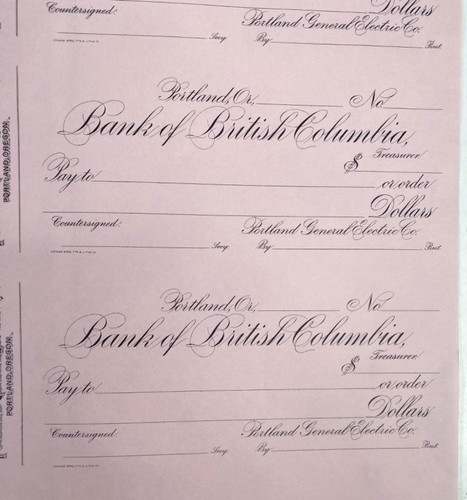 Dollars
Countersigned:
Portland General Electric Co.
Secy. By Prest.
Portland, Or., No
Bank of British Columbia,
Treasurer
$
Pay to or order
Dollars
Countersigned:
Portland General Electric Co.
Secy. By Prest.
PORTLAND, OREGON.
Portland, Or., No
Bank of British Columbia,
Treasurer
$
Pay to or order
Dollars
Countersigned:
Portland General Electric Co.
Secy. By Prest.
PORTLAND, OREGON.